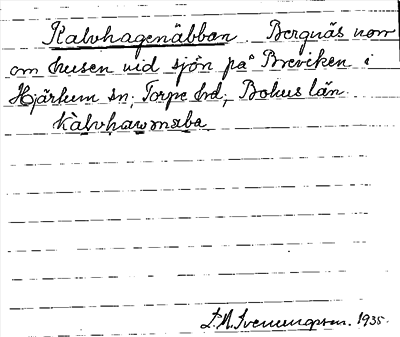 Kalvhagenäbban Bergnäs norr
om husen vid sjön på Breviken i
Hjärtum sn; Torpe hd; Bohus län.
kàlvhawənæba
D. A. Svenungsson. 1935.